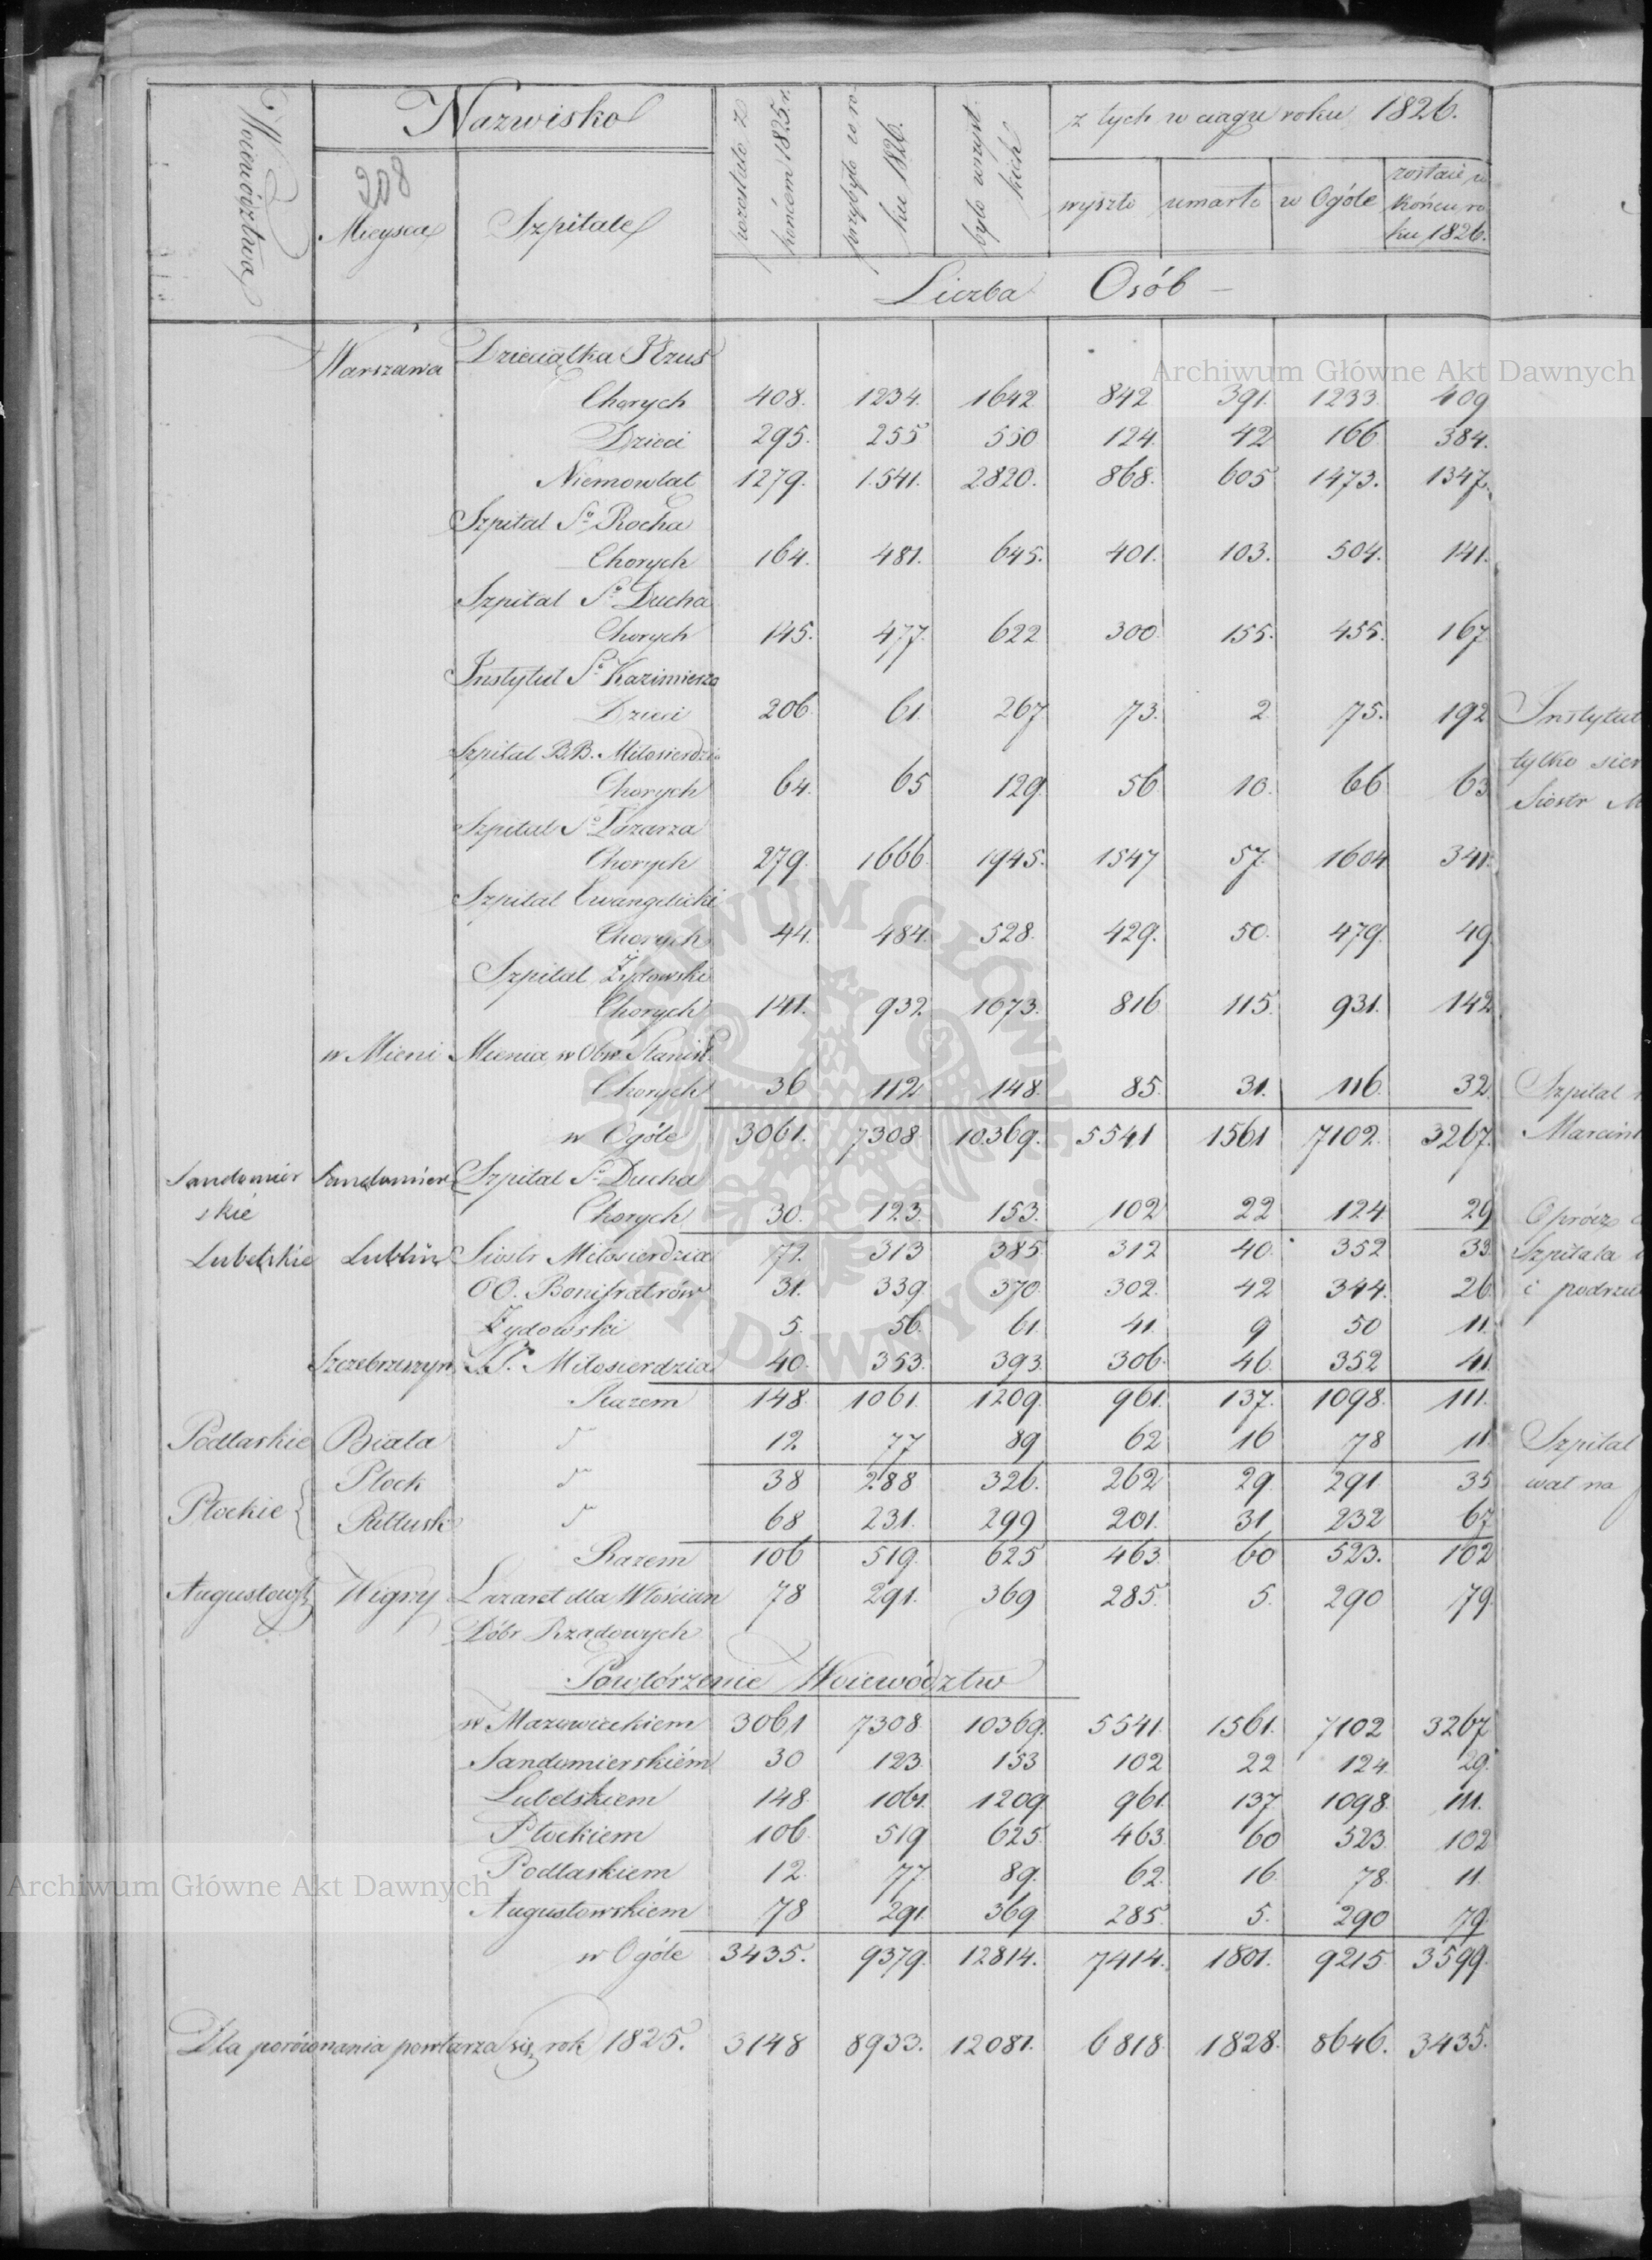 Nazwisko
z tych w ciągu roku 1826.
Województwa
208
Mieysca
Szpitale
pozostało z końcem 1825. r.
przybyło w roku 1826.
było wszystkich
wyszło
umarło
w Ogóle
zostaie w końcu roku 1826.
Liczba Osób –
Warszawa Dzieciątka Jezus
Chorych 408. 1234. 1642 842 391. 1233. 409
Dzieci 295. 255 550 124. 42 166 384.
Niemowląt 1279. 1541. 2820. 868. 605 1473. 1347.
Szpital So Rocha
Chorych 164. 481. 645. 401. 103. 504. 141.
Szpital So Ducha
Chorych 145. 477. 622 300 155. 455. 167
Instytut So Kazimierza
Dzieci 206 61. 267 73. 2 75. 192 Instytut
Szpital B.B. Miłosierdzia tylko
Chorych 64. 65 129. 56 10. 66 63 Siostr
Szpital So Łazarza
Chorych 279. 1666. 1945. 1547 57. 1604 341.
Szpital Ewangelicki
Chorych 44. 484. 528. 429. 50. 479. 49.
Szpital Żydowski
Chorych 141. 932. 1073. 816 115. 931. 142
w Mieni Mienia w Obw. Stanisł.
Chorych 36 112 148. 85. 31. 116. 32. Szpital
w Ogóle 3061. 7308. 10369. 5541 1561 7102. 3267.
Sandomier Sandomierz Szpital So Ducha
skie Chorych 30. 123. 153. 102 22 124 29 Oprócz
Lubelskie Lublin Siostr Miłosierdzia 72. 313 385 312 40. 352 33. Szpitala
OO. Bonifratrów 31. 339. 370. 302. 42 344. 26 i
Żydowski 5. 56. 61. 41. 9 50 11.
Szczebrzeszyn SS. Miłosierdzia 40. 353. 393. 306. 46. 352 41
Razem 148. 1061. 1209. 961. 137. 1098. 111.
Podlaskie Biała 12. 77 89 62 16 78 11. Szpital
Płockie Płock 38 288 326. 262 29. 291. 35 wał na
Pułtusk 68 231. 299 201. 31 232 67
Razem 106 519. 625 463. 60 523. 102
Augustows. Wigry Lazaret dla Włościan 78 291. 369 285. 5. 290 79.
Dóbr Rządowych
Powtórzenie Woiewództw
w Mazowieckiem 3061 7308. 10369. 5541. 1561. 7102 3267
Sandomierskiém 30 123. 153 102 22 124. 29.
Lubelskiem 148. 1061. 1209. 961. 137 1098. 111.
Płockiem 106. 519 625. 463. 60 523. 102
Podlaskiem 12. 77. 89. 62. 16. 78. 11.
Augustowskiem 78 291. 369 285. 5. 290 79.
w Ogóle 3435. 9379. 12814. 7414. 1801. 9215 3599.
Dla porównania powtarza się rok 1825. 3148 8933. 12081. 6818. 1828. 8646. 3435.
Archiwum Główne Akt Dawnych
ARCHIWUM GŁÓWNE AKT DAWNYCH
Archiwum Główne Akt Dawnych